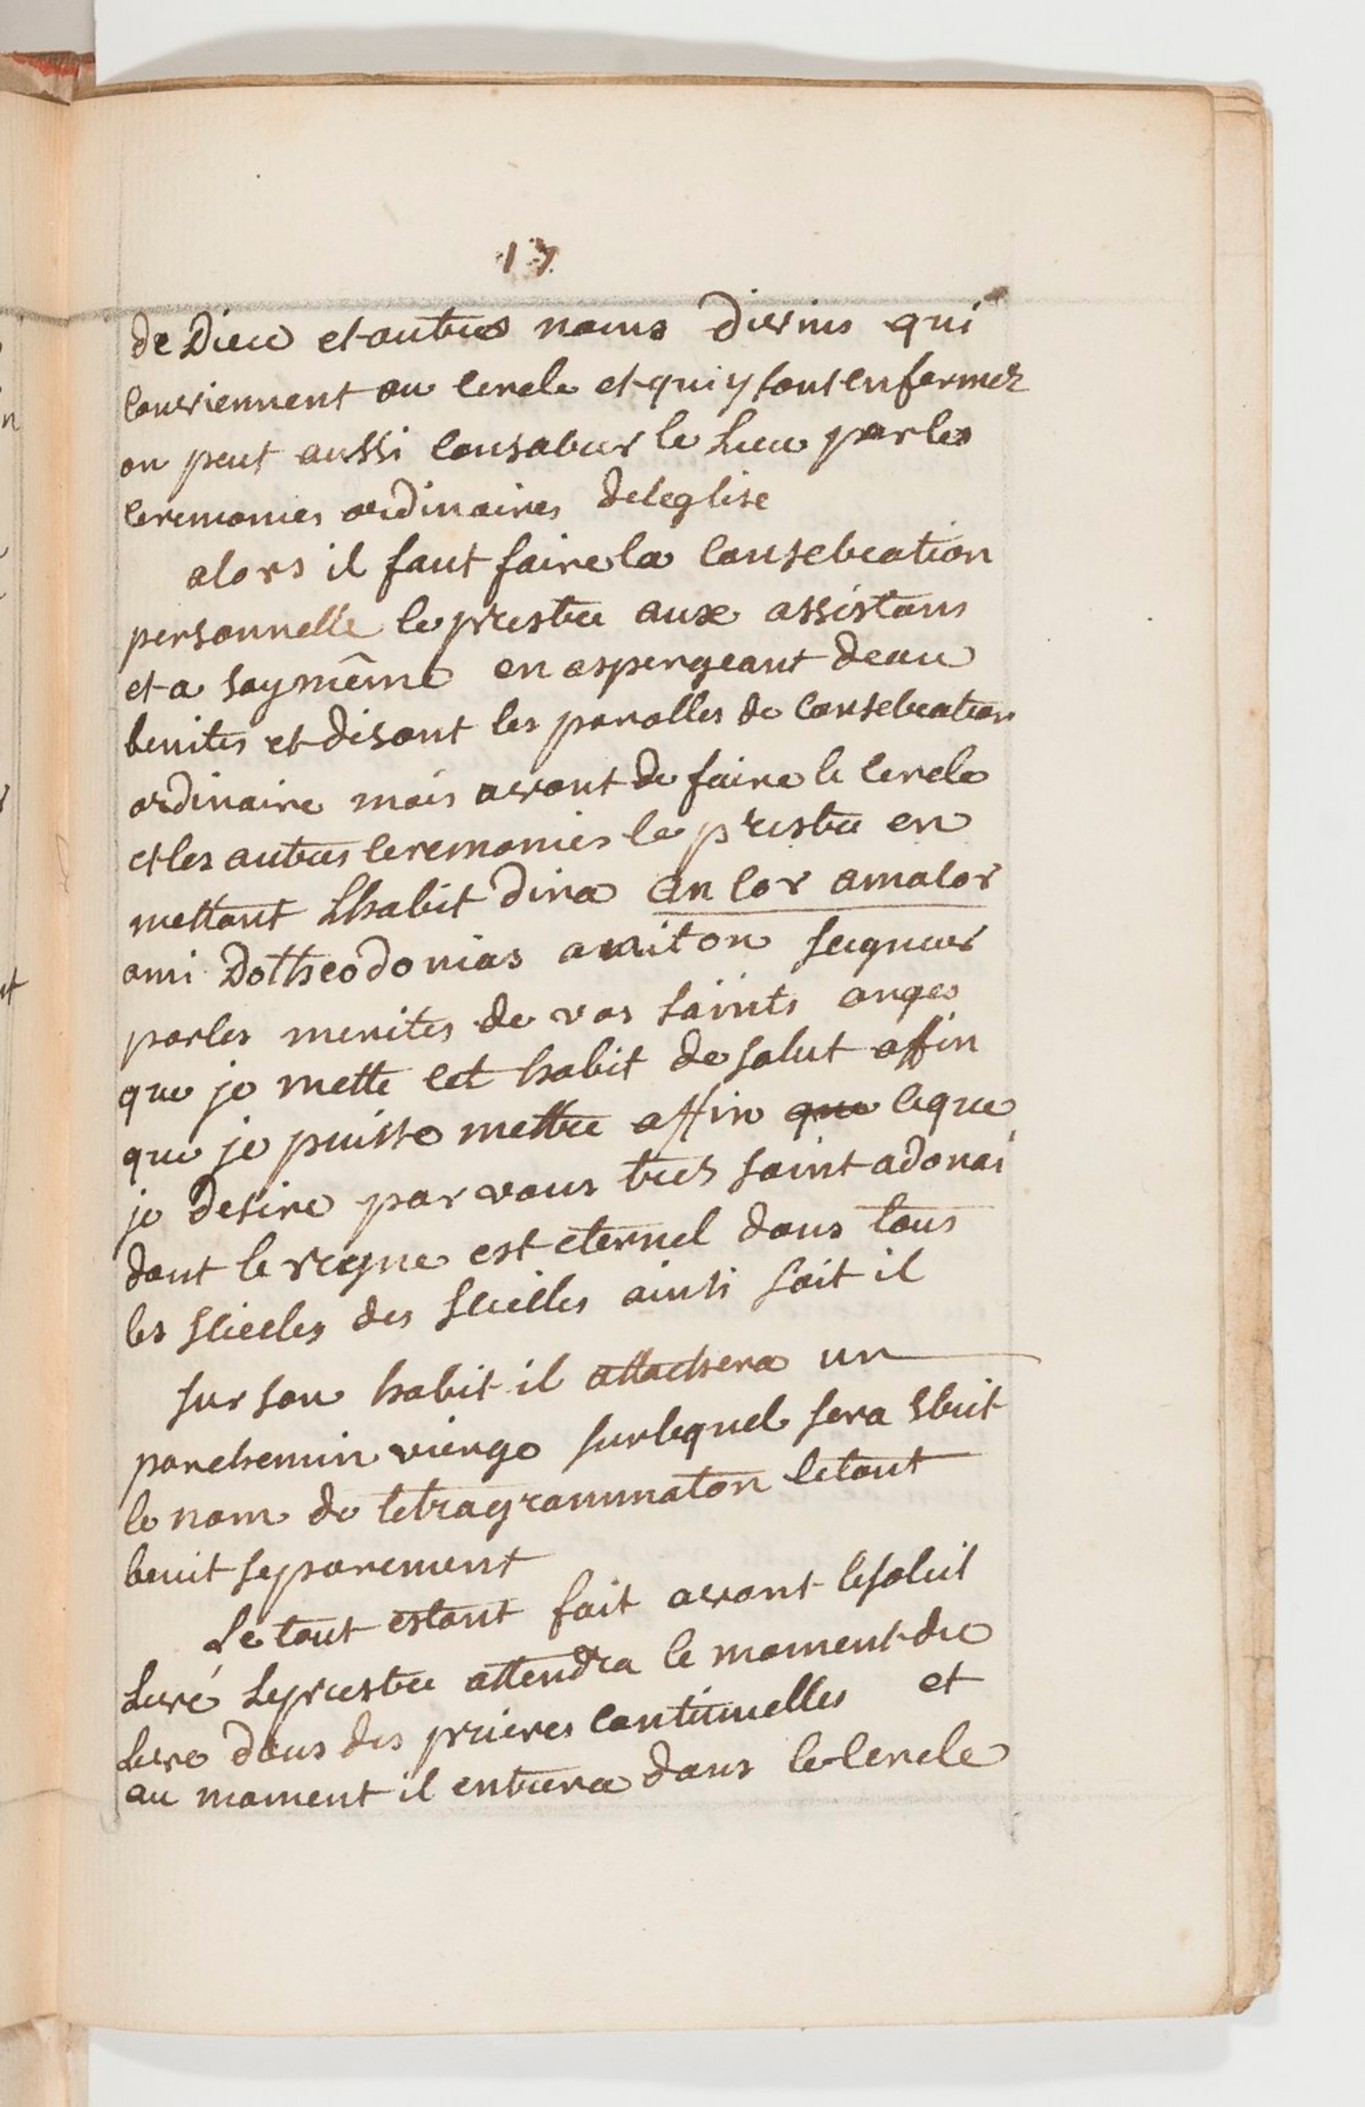 17
de Dieu et autres noms divins qui
conviennent au cercle et qui y sont enfermez
on peut aussi consacrer le Lieu par les
ceremonies ordinaires de leglise
alors il faut faire la consecration
personnelle le prestre aux assistans
et a soy même en aspergeant deau
benites et disant les parolles de consecration
ordinaire mais avant de faire le cercle
et les autres ceremonies le prestre en
mettant Lhabit dira an cor amacor
ami Dotheodonias aniton seigneur
par les merites de vos saints anges
que je mette cet habit de salut affin
que je puisse mettre affin que ceque
je desire par vous tres saint adonai
dont le regne est eternel dans tous
les sciecles des sciecles ainsi soit il
sur son habit il attachera un
parchemin vierge sur lequel sera escrit
le nom de tetragrammaton letout
benit separement
Le tout estant fait avant lesoleil
Levé Leprestre attendra le moment du
Levé dans des prieres continuelles et
au moment il entrera dans le cercle